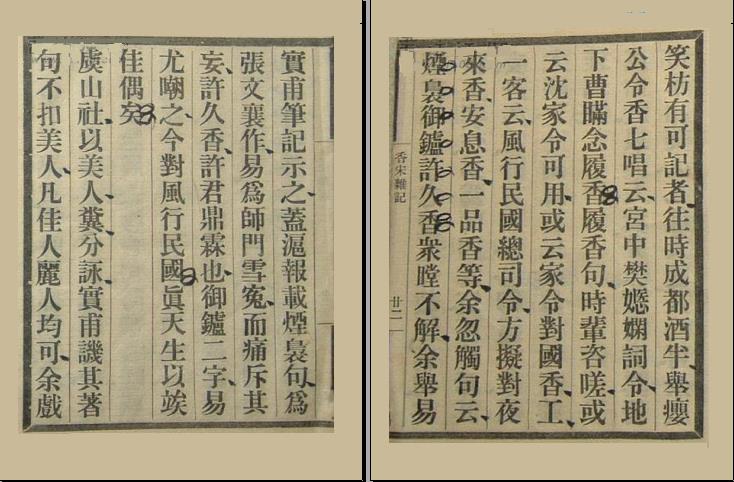 笑枋有可記者往時成都酒半舉癭
公令香七唱云宮中樊嬺嫻詞令地
下曹瞞念履香履香句時輩咨嗟或
云沈家令可用或云家令對國香工
一客云風行民國總司令方擬對夜
來香安息香一品香等余忽觸句云
煙裊御鑪許久香衆瞠不解余舉易
香宋雜記
廿二
實甫筆記示之蓋滬報載煙裊句爲
張文襄作易爲師門雪寃而痛斥其
妄許久香許君鼎霖也御鑪二字易
尤嘲之今對風行民國眞天生以竢
佳偶矣
虞山社以美人糞分詠實甫譏其著
句不扣美人凡佳人麗人均可余戲